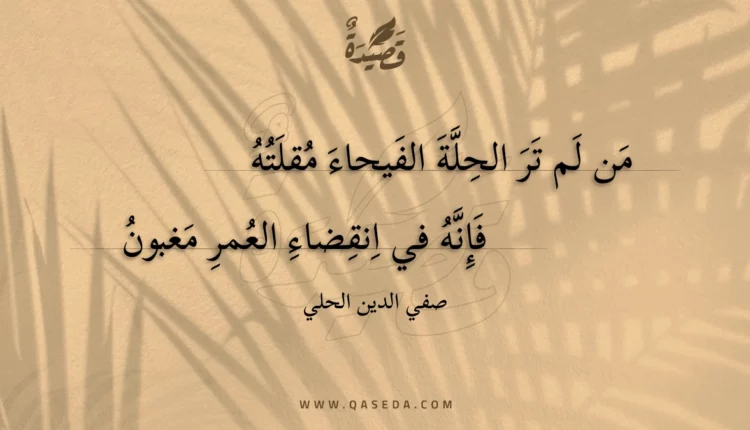 قَصِيْدَةٌ
مَن لَم تَرَ الحِلَّةَ الفَيحاءَ مُقلَتُهُ
فَإِنَّهُ في اِنقِضاءِ العُمرِ مَغبونُ
صفي الدين الحلي
WWW.QASEDA.COM